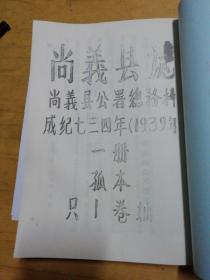 尚義县志
尚義县公署總務科
成纪七三四年(1939年
一册
孤本
只一卷抽